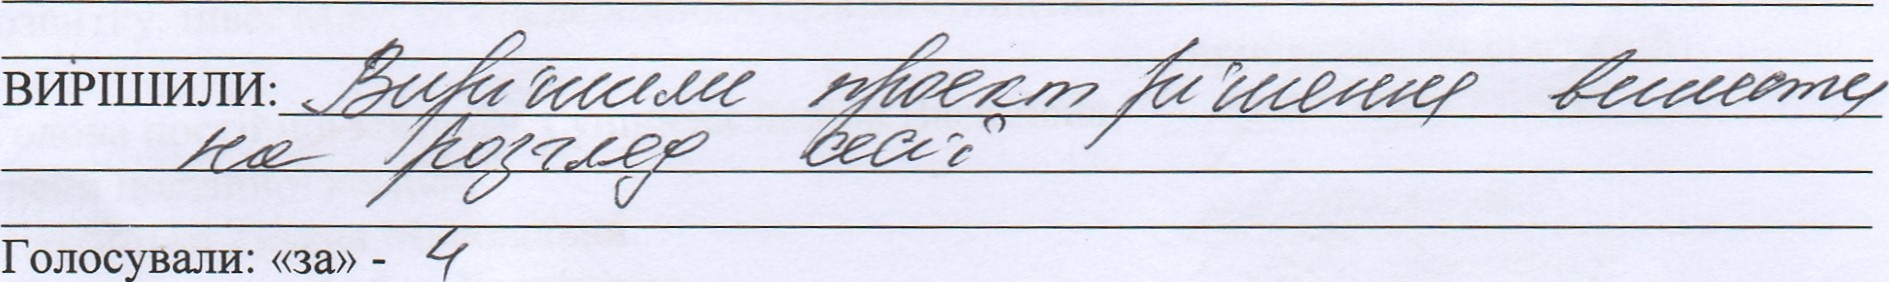 ВИРІШИЛИ: Вирішили проект рішення винести
на розгляд сесії
Голосували: «за» - 4